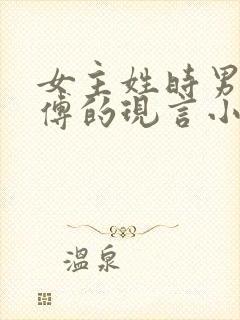 女主姓時男
傅的現言小
溫泉